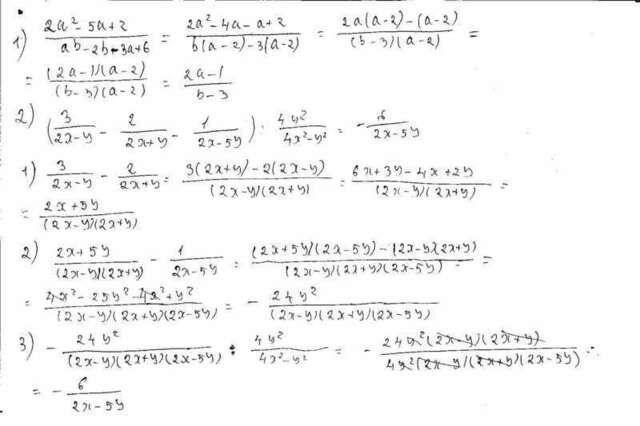 1) (2a² - 5a + 2)/(ab - 2b - 3a + 6) = (2a² - 4a - a + 2)/(b(a - 2) - 3(a - 2)) = (2a(a - 2) - (a - 2))/((b - 3)(a - 2)) =
= ((2a - 1)(a - 2))/((b - 3)(a - 2)) = (2a - 1)/(b - 3)
2) (3/(2x - y) - 2/(2x + y) - 1/(2x - 5y)) : 4y²/(4x² - y²) = - 6/(2x - 5y)
1) 3/(2x - y) - 2/(2x + y) = (3(2x + y) - 2(2x - y))/((2x - y)(2x + y)) = (6x + 3y - 4x + 2y)/((2x - y)(2x + y)) =
= (2x + 5y)/((2x - y)(2x + y))
2) (2x + 5y)/((2x - y)(2x + y)) - 1/(2x - 5y) = ((2x + 5y)(2x - 5y) - (2x - y)(2x + y))/((2x - y)(2x + y)(2x - 5y)) =
= (4x² - 25y² - 4x² + y²)/((2x - y)(2x + y)(2x - 5y)) = - 24y²/((2x - y)(2x + y)(2x - 5y))
3) - 24y²/((2x - y)(2x + y)(2x - 5y)) : 4y²/(4x² - y²) = - (24y²(2x - y)(2x + y))/(4y²(2x - y)(2x + y)(2x - 5y)) =
= - 6/(2x - 5y)